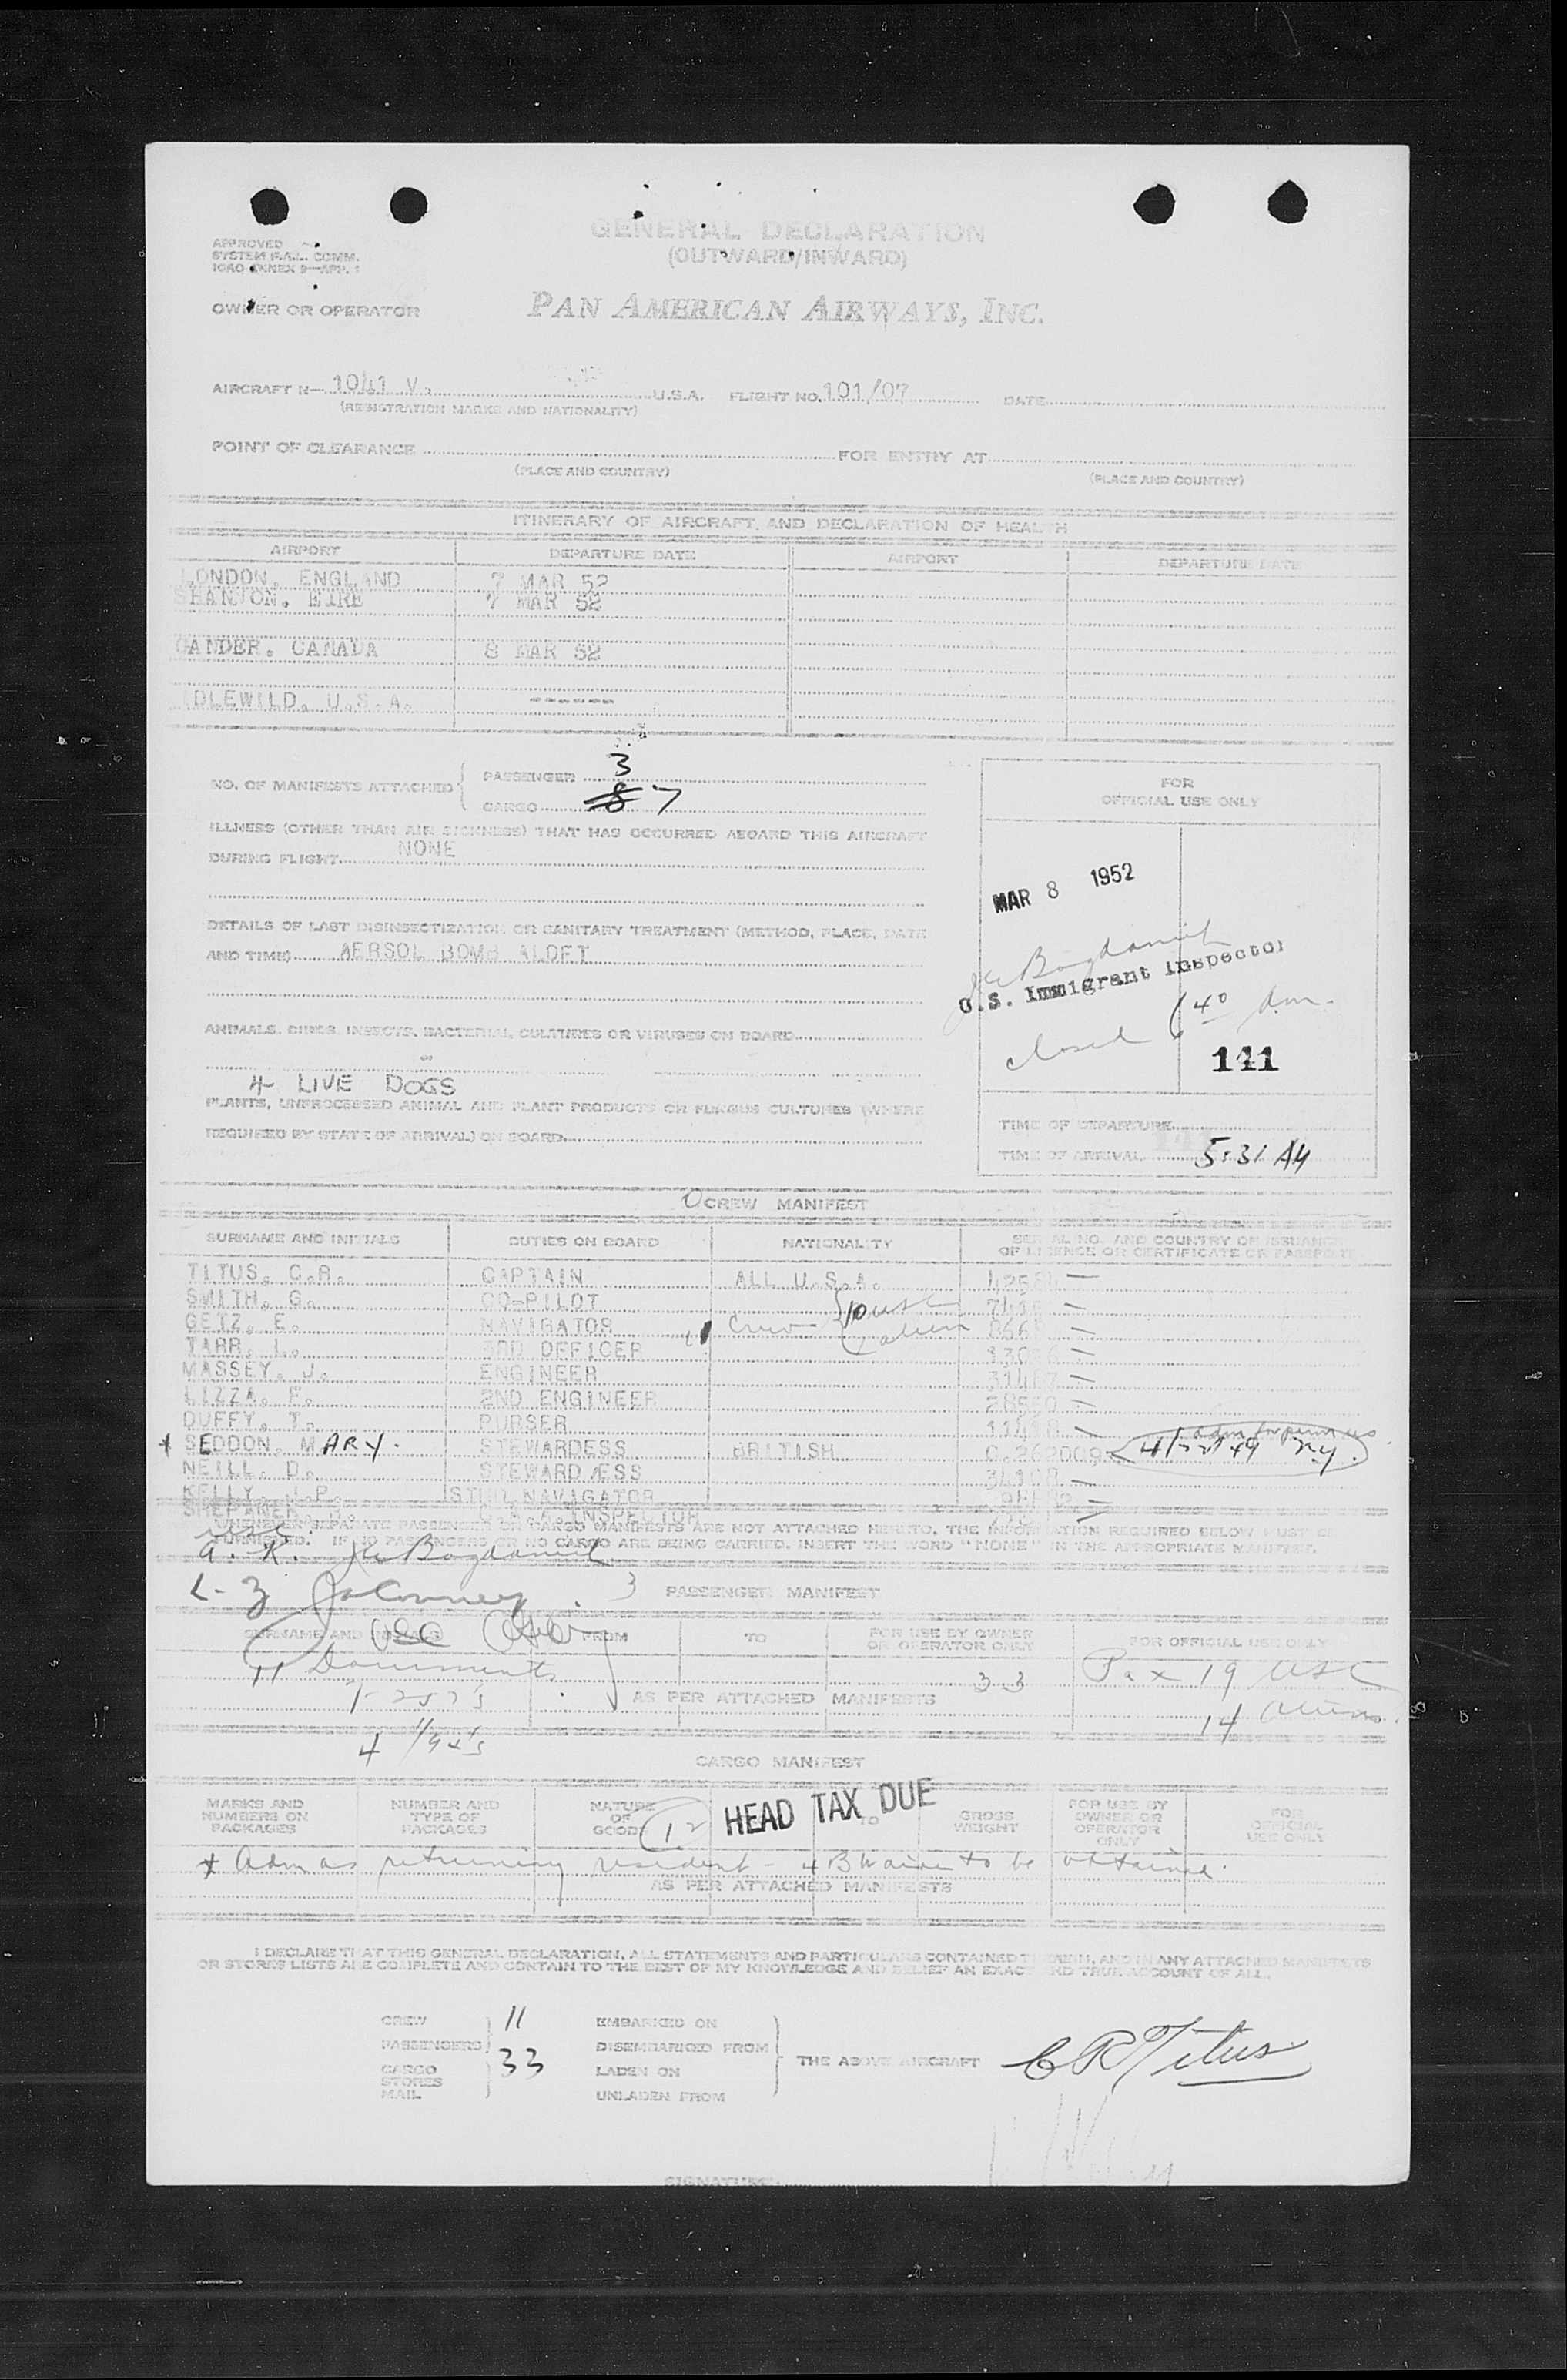 GENERAL DECLARATION
(OUTWARD/INWARD)
APPROVED
SYSTEM F.A.L. COMM.
ICAO ANNEX 9—APP. 1
OWNER OR OPERATOR PAN AMERICAN AIRWAYS, INC.
AIRCRAFT N— 1041 V. U.S.A. FLIGHT NO. 101/07 DATE
(REGISTRATION MARKS AND NATIONALITY)
POINT OF CLEARANCE FOR ENTRY AT
(PLACE AND COUNTRY) (PLACE AND COUNTRY)
ITINERARY OF AIRCRAFT, AND DECLARATION OF HEALTH
AIRPORT DEPARTURE DATE AIRPORT DEPARTURE DATE
LONDON, ENGLAND 7 MAR 52
SHANNON, EIRE 7 MAR 52
GANDER, CANADA 8 MAR 52
IDLEWILD, U.S.A. ------
NO. OF MANIFESTS ATTACHED PASSENGER 3
CARGO 8 7
ILLNESS (OTHER THAN AIR SICKNESS) THAT HAS OCCURRED ABOARD THIS AIRCRAFT
DURING FLIGHT NONE
DETAILS OF LAST DISINSECTIZATION OR SANITARY TREATMENT (METHOD, PLACE, DATE
AND TIME) AERSOL BOMB ALOFT
ANIMALS, BIRDS, INSECTS, BACTERIAL CULTURES OR VIRUSES ON BOARD
4 LIVE DOGS
PLANTS, UNPROCESSED ANIMAL AND PLANT PRODUCTS OR FUNGUS CULTURES (WHERE
REQUIRED BY STATE OF ARRIVAL) ON BOARD
FOR
OFFICIAL USE ONLY
MAR 8 1952
U.S. Immigrant Inspector
closed 6 40 Am.
141
TIME OF DEPARTURE
TIME OF ARRIVAL 5:31 AM
CREW MANIFEST
SURNAME AND INITIALS DUTIES ON BOARD NATIONALITY SERIAL NO. AND COUNTRY OF ISSUANCE
OF LICENCE OR CERTIFICATE OR PASSPORT
TITUS, C.R. CAPTAIN ALL U.S.A.
SMITH, G. CO-PILOT 10 USC
GETZ, E. NAVIGATOR Crew alien
TARR, L. 3RD OFFICER
MASSEY, J. ENGINEER
LIZZA, F. 2ND ENGINEER
DUFFY, T. PURSER
SEDDON, MARY. STEWARDESS BRITISH 4/22/49 N.Y.
NEILL, D. STEWARD/ESS
KELLY, J.P. NAVIGATOR
INSPECTOR
WHENEVER SEPARATE PASSENGER OR CARGO MANIFESTS ARE NOT ATTACHED HERETO, THE INFORMATION REQUIRED BELOW MUST BE
FURNISHED. IF NO PASSENGERS OR NO CARGO ARE BEING CARRIED, INSERT THE WORD "NONE" IN THE APPROPRIATE MANIFEST.
3 PASSENGER MANIFEST
SURNAME AND INITIALS FROM TO FOR USE BY OWNER
OR OPERATOR ONLY FOR OFFICIAL USE ONLY
11 Documents 33 Pax 19 USC
AS PER ATTACHED MANIFESTS
14 Aliens
CARGO MANIFEST
MARKS AND
NUMBERS ON
PACKAGES
NUMBER AND
TYPE OF
PACKAGES
NATURE
OF
GOODS
TO
GROSS
WEIGHT
FOR USE BY
OWNER OR
OPERATOR
ONLY
FOR
OFFICIAL
USE ONLY
12 HEAD TAX DUE
Adm as returning resident - 4 B Waiver to be obtained.
AS PER ATTACHED MANIFESTS
I DECLARE THAT THIS GENERAL DECLARATION, ALL STATEMENTS AND PARTICULARS CONTAINED THEREIN, AND IN ANY ATTACHED MANIFESTS
OR STORES LISTS ARE COMPLETE AND CONTAIN TO THE BEST OF MY KNOWLEDGE AND BELIEF AN EXACT AND TRUE ACCOUNT OF ALL.
CREW 11 EMBARKED ON
PASSENGERS 33 DISEMBARKED FROM
CARGO LADEN ON
STORES
MAIL UNLADEN FROM
THE ABOVE AIRCRAFT CR Titus
SIGNATURE